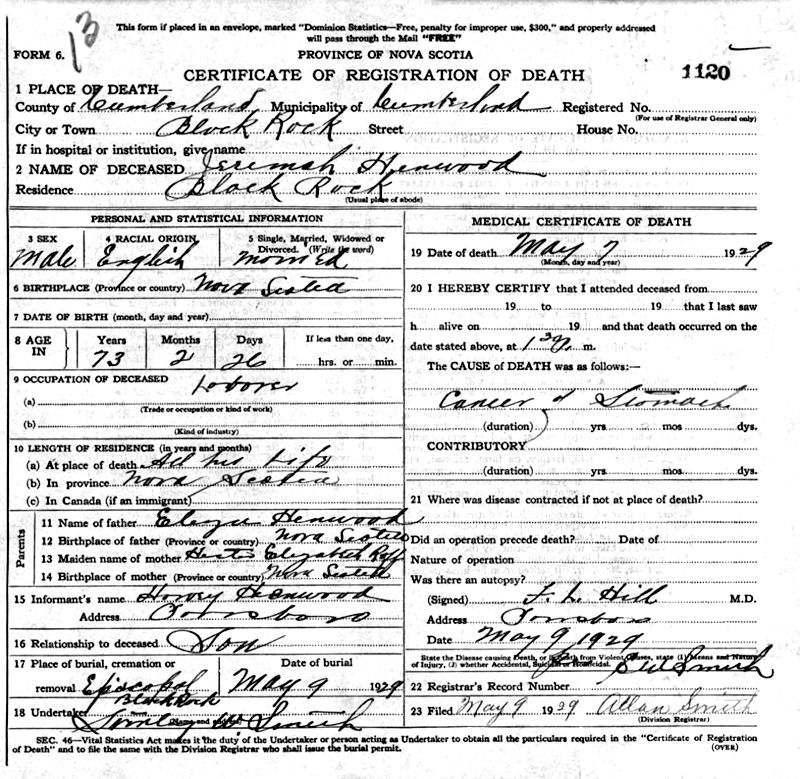 13
This form if placed in an envelope, marked "Dominion Statistics—Free, penalty for improper use, $300," and properly addressed
will pass through the Mail "FREE"
FORM 6.
PROVINCE OF NOVA SCOTIA
CERTIFICATE OF REGISTRATION OF DEATH
1120
1 PLACE OF DEATH—
County of Cumberland Municipality of Cumberland Registered No.
(For use of Registrar General only)
City or Town Black Rock Street House No.
If in hospital or institution, give name
2 NAME OF DECEASED Jeremiah Henwood
Residence Black Rock
(Usual place of abode)
PERSONAL AND STATISTICAL INFORMATION
3 SEX 4 RACIAL ORIGIN 5 Single, Married, Widowed or
Divorced. (Write the word)
Male English
6 BIRTHPLACE (Province or country) Nova Scotia
7 DATE OF BIRTH (month, day and year)
8 AGE IN Years Months Days If less than one day,
73 2 26 hrs. or min.
9 OCCUPATION OF DECEASED
(a) Laborer
(Trade or occupation or kind of work)
(b)
(Kind of industry)
10 LENGTH OF RESIDENCE (in years and months)
(a) At place of death All his Life
(b) In province Nova Scotia
(c) In Canada (if an immigrant)
Parents
11 Name of father Henwood
12 Birthplace of father (Province or country) Nova Scotia
13 Maiden name of mother Elizabeth
14 Birthplace of mother (Province or country) Nova Scotia
15 Informant's name Harvey Henwood
Address Parrsboro
16 Relationship to deceased Son
17 Place of burial, cremation or Date of burial
removal Episcopal May 9 1929
Black Rock
18 Undertaker Smith
(Name and address)
MEDICAL CERTIFICATE OF DEATH
19 Date of death May 7 1929
(Month, day and year)
20 I HEREBY CERTIFY that I attended deceased from
19 to 19 that I last saw
h alive on 19 and that death occurred on
date stated above, at m.
The CAUSE of DEATH was as follows:—
Cancer of Stomach
(duration) yrs mos dys.
CONTRIBUTORY
(duration) yrs mos dys.
21 Where was disease contracted if not at place of death?
Did an operation precede death? Date of
Nature of operation
Was there an autopsy?
(Signed) F. L. Hill M.D.
Address Parrsboro
Date May 9 1929
State the Disease causing Death, or in Death from Violent Causes, state (1) Means and Nature
of Injury, (2) whether Accidental, Suicidal or Homicidal.
Smith
22 Registrar's Record Number
23 Filed May 9 1929 Allan Smith
(Division Registrar)
SEC. 46—Vital Statistics Act makes it the duty of the Undertaker or person acting as Undertaker to obtain all the particulars required in the "Certificate of Registration
of Death" and to file the same with the Division Registrar who shall issue the burial permit.
(OVER)